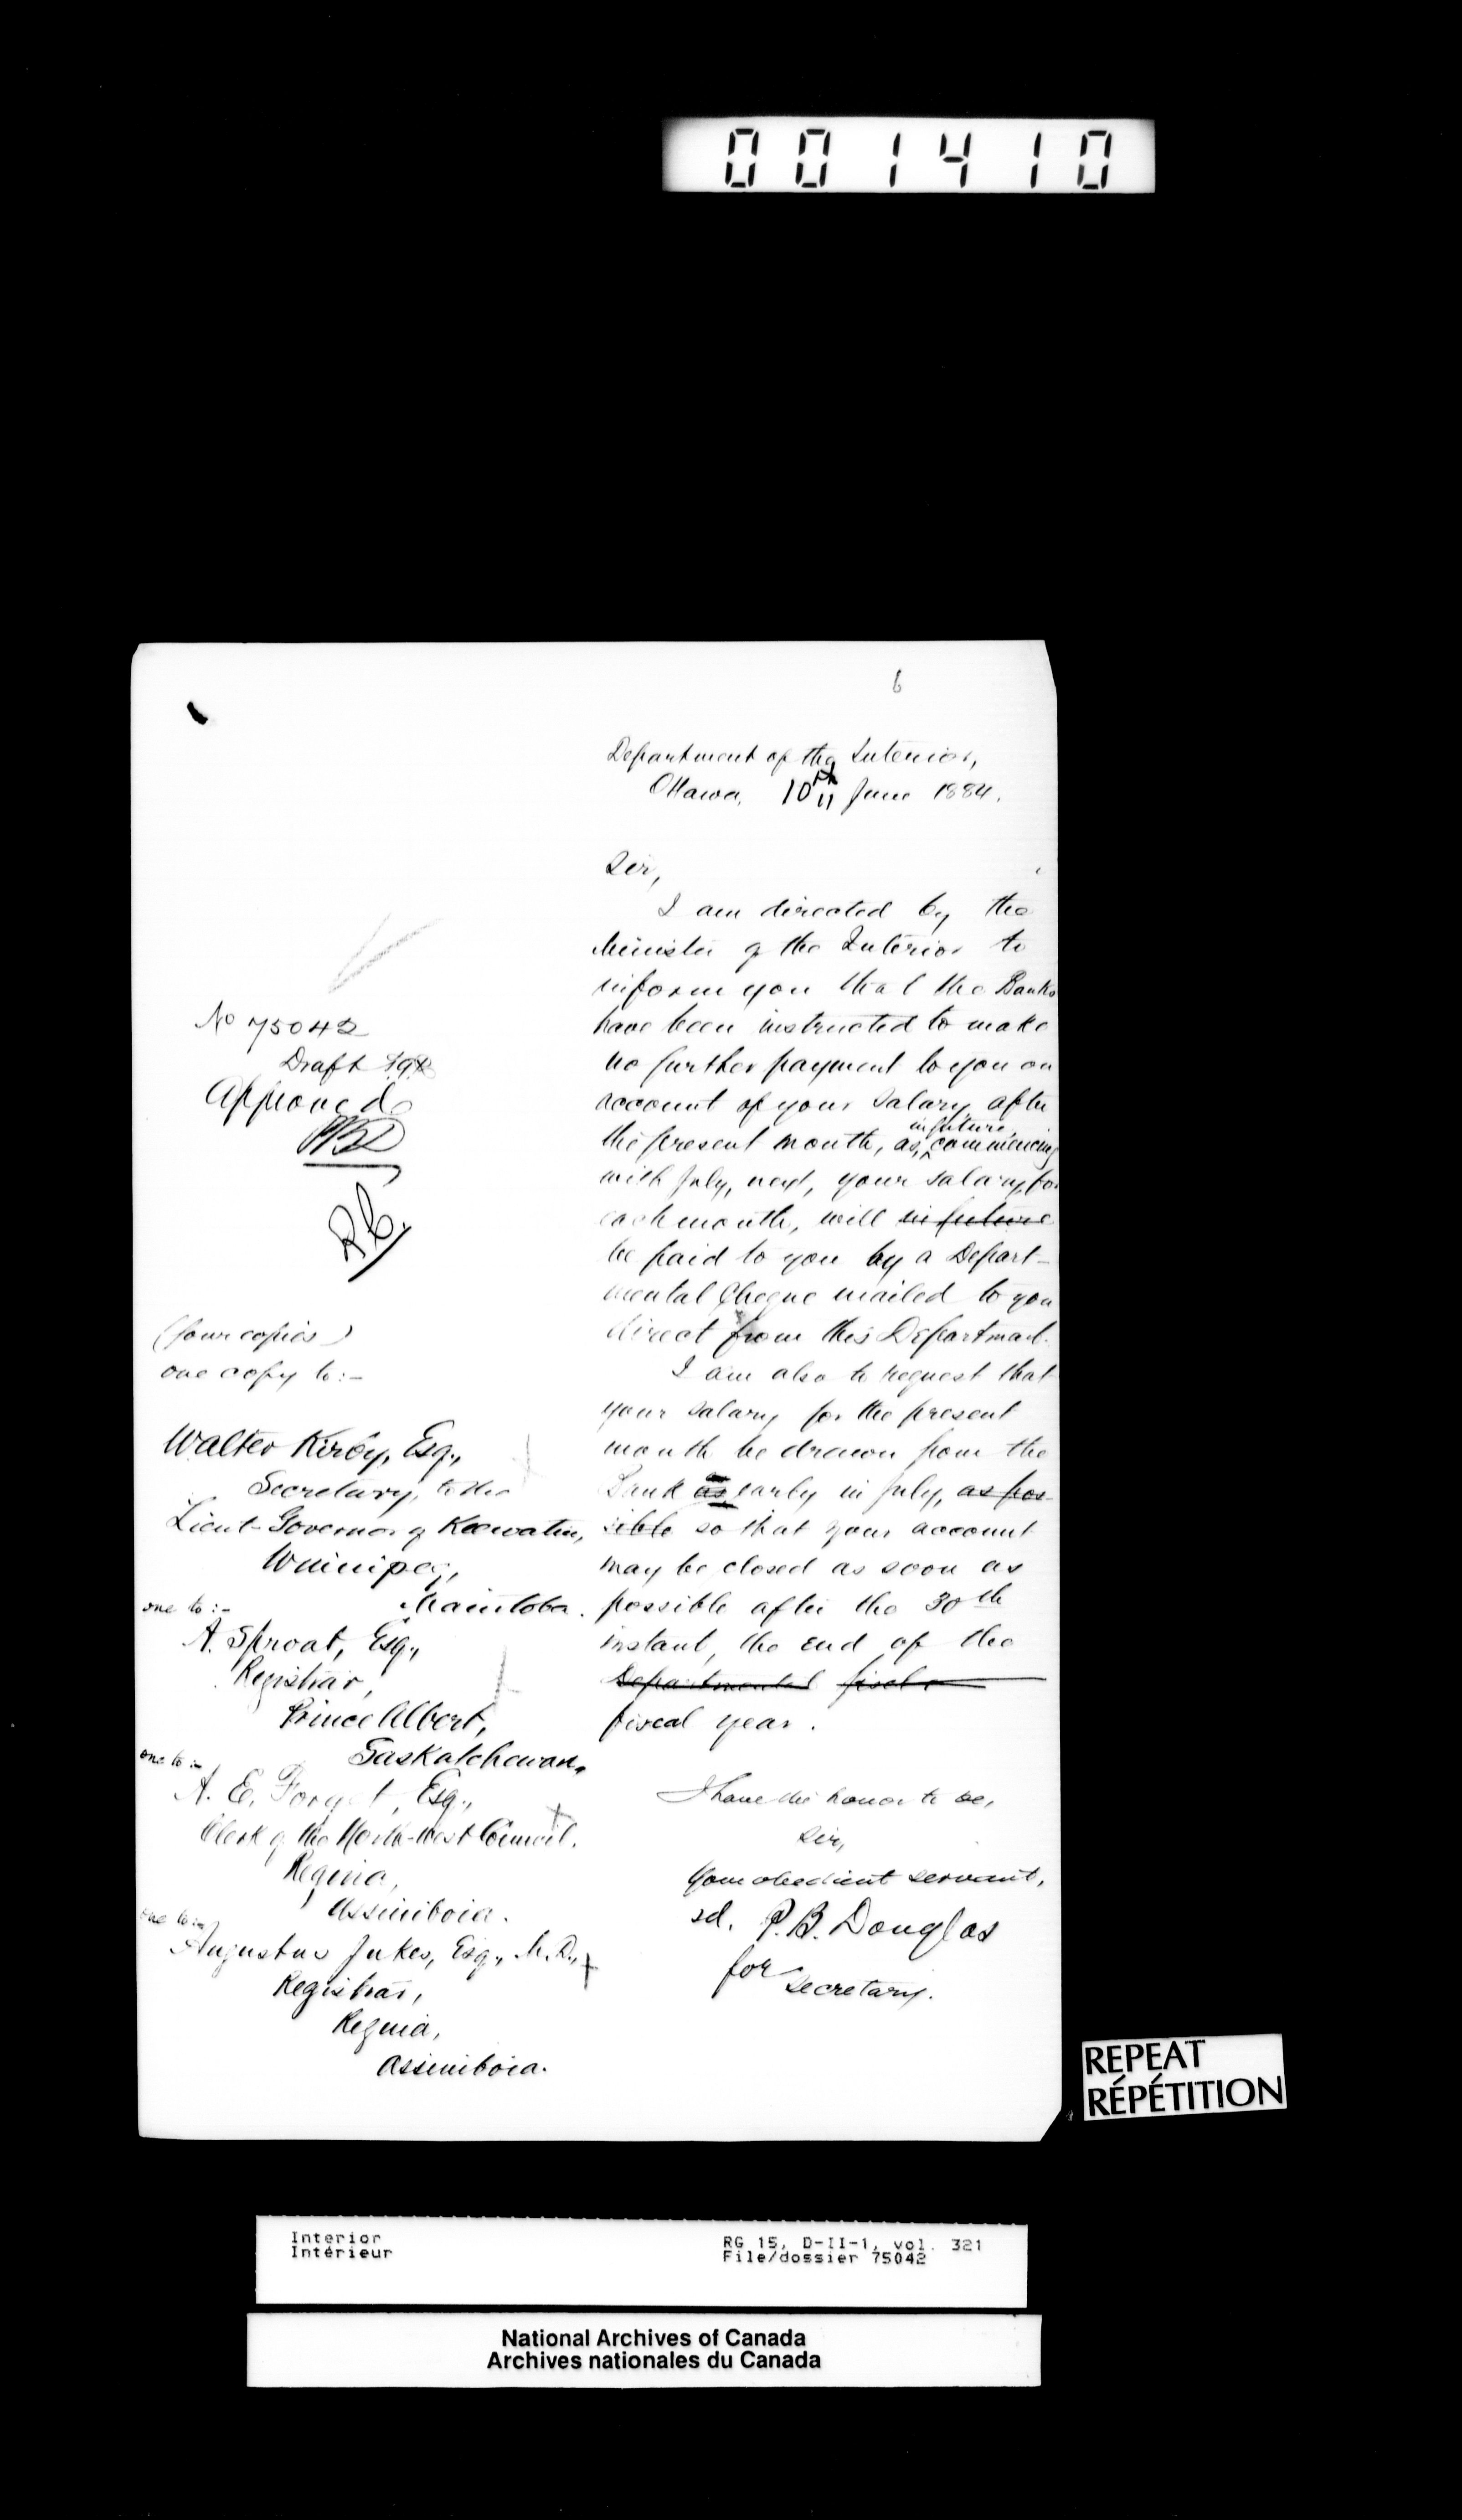 001410
6
Department of the Interior,
Ottawa, 10th June 1884.
Sir,
I am directed by the
Minister of the Interior to
inform you that the Banks
have been instructed to make
no further payment to you on
account of your salary after
the present month, as, in future, commencing
with July, next, your salary, for
each month, will in future
be paid to you by a Depart-
mental Cheque mailed to you
direct from this Department.
I am also to request that
your salary for the present
month be drawn from the
Bank as early in July, as pos-
sible so that your account
may be closed as soon as
possible after the 30th
instant, the end of the
Departmental fiscal
fiscal year.
I have the honor to be,
Sir,
Your obedient servant,
sd. P. B. Douglas
for Secretary.
No 75042
Draft
Approved
PBD
(four copies)
one copy to:-
Walter Kirby, Esq.,
Secretary, to the
Lieut-Governor of Keewatin,
Winnipeg,
Manitoba.
one to:-
A. Sproat, Esq.,
Registrar,
Prince Albert,
Saskatchewan.
one to:-
A. E. Forget, Esq.,
Clerk of the North-West Council,
Regina,
Assiniboia.
one to:-
Augustus Jukes, Esq., M.D.,
Registrar,
Regina,
Assiniboia.
REPEAT
RÉPÉTITION
Interior
Intérieur
RG 15, D-II-1, vol. 321
File/dossier 75042
National Archives of Canada
Archives nationales du Canada